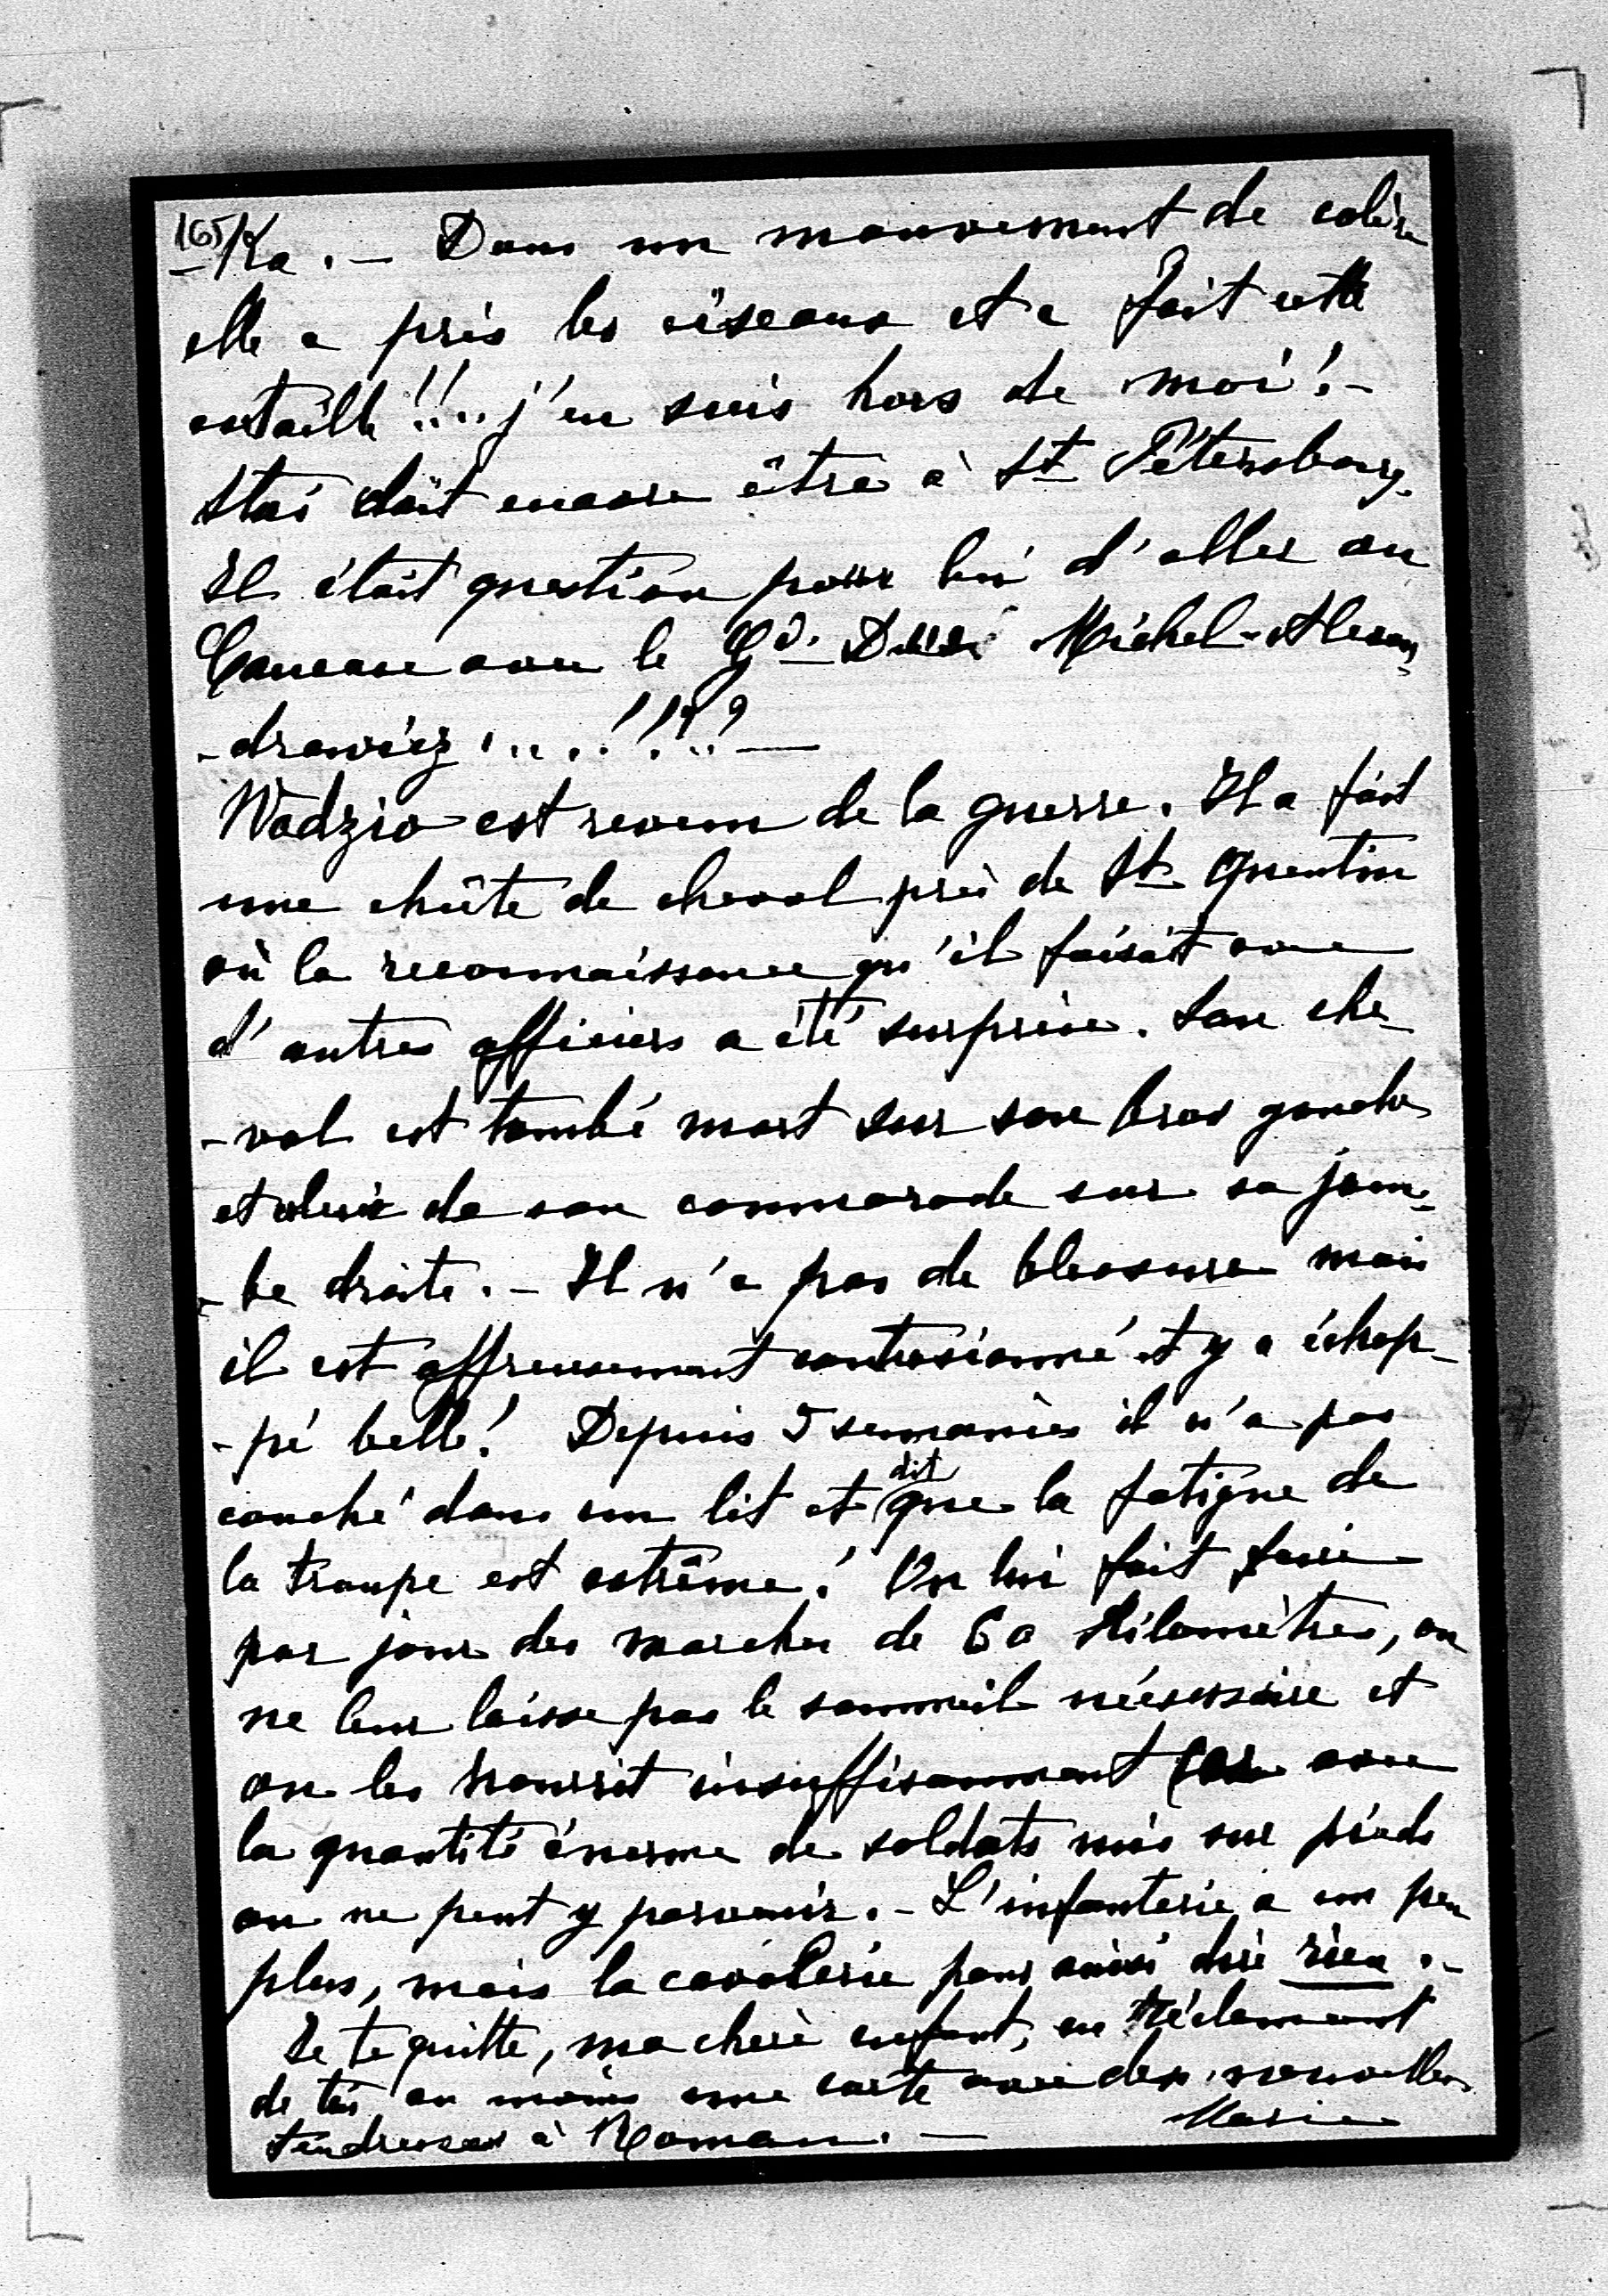 165/
-Ka. - Dans un mouvement de colère
elle a pris les ciseaux et a fait cette
entaille!!.. j'en suis hors de moi! -
Stas doit encore être à St Pétersbourg.
Il était question pour lui d'aller au
Caucase avec le Gd. Duc Michel-Alexan
-drowicz.....!!??—
Wadzio est revenu de la guerre. Il a fait
une chûte de cheval près de St Quentin
où la reconnaissance qu'il faisait avec
d'autres officiers a été surprise. Son che
-val est tombé mort sur son bras gauche
et celui de son commarade sur sa jam-
-be droite. - Il n'a pas de blessure mais
il est affreusement contusionné et y a échap-
-pé belle! Depuis 5 semaines il n'a pas
couché dans un lit et dit que la fatigue de
la troupe est extrême! On lui fait faire
par jour des marches de 60 Kilomètres, on
ne leur laisse pas le sommeil nécessaire et
on les nourrit insuffisamment car avec
la quantité énorme de soldats mis sur pieds
on ne peut y parvenir. - L'infanterie a un peu
plus, mais la cavalerie pour ainsi dire rien. -
Je te quitte, ma chère enfant, en réclamant
de toi au moins une carte avec des nouvelles.
tendresses à Roman. — Marie